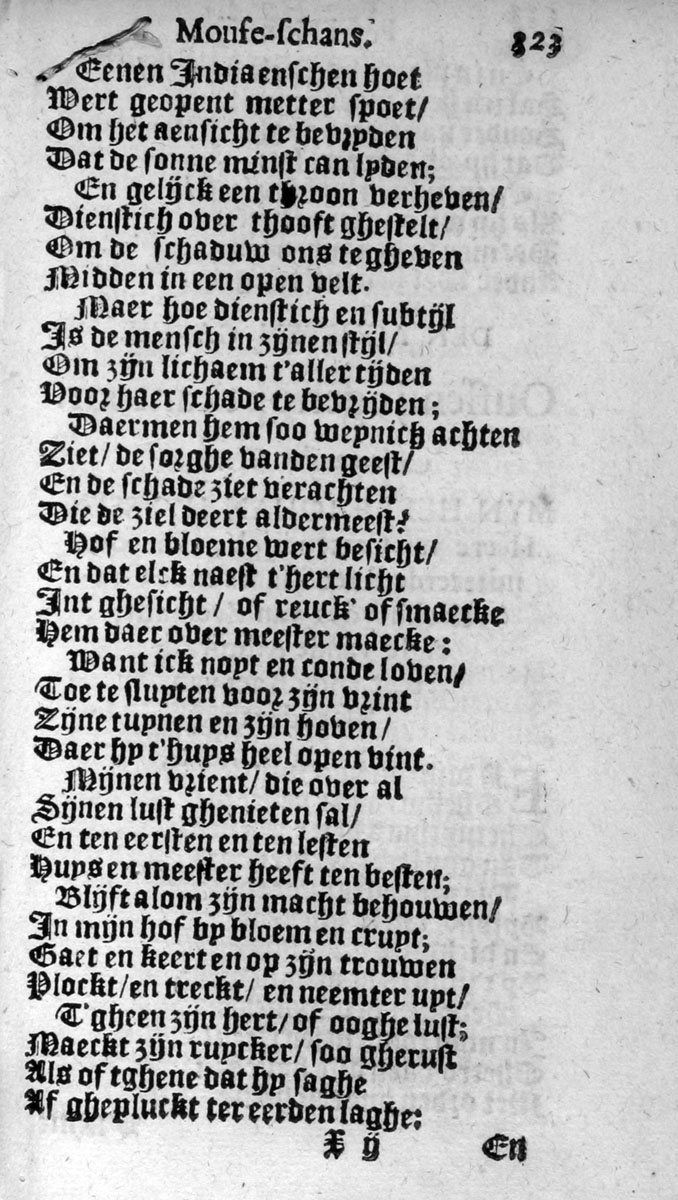 Mouse-schans. 323
Eenen Indiaenschen hoet
Wert geopent metter spoet/
Om het aensicht te bevryden
Dat de sonne minst can lyden;
En gelijck een throon verheven/
Dienstich over thooft ghestelt/
Om de schaduw ons te gheven
Midden in een open velt.
Maer hoe dienstich en subtijl
Is de mensch in zijnen stijl/
Om zijn lichaem t'aller tijden
Voor haer schade te bevrijden;
Daermen hem soo weynich achten
Ziet/ de sorghe vanden geest/
En de schade ziet verachten
Die de ziel deert aldermeest?
Hof en bloeme wert besicht/
En dat elck naest t'hert licht
Int ghesicht/ of reuck of smaecke
Hem daer over meester maecke:
Want ick noyt en conde loven/
Toe te sluyten voor zijn vrint
Zijne tuynen en zijn hoven/
Daer hy t'huys heel open vint.
Mijnen vrient/ die over al
Sijnen lust ghenieten sal/
En ten eersten en ten lesten
Huys en meester heeft ten besten;
Blijft alom zijn macht behouwen/
In mijn hof by bloem en cruyt;
Gaet en keert en op zijn trouwen
Plockt/en treckt/ en neemter uyt/
T'gheen zijn hert/ of ooghe lust;
Maeckt zijn ruycker/ soo gherust
Als of tghene dat hy saghe
Af ghepluckt ter eerden laghe:
X ij En